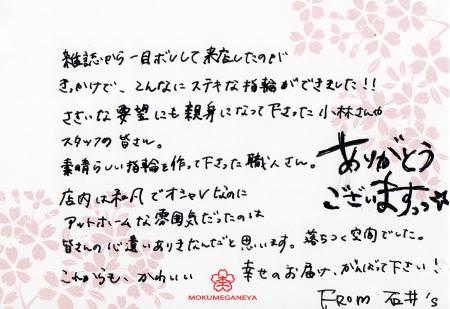 雑誌から一目ボレして来店したのが
きっかけで、こんなにステキな指輪ができました!!
ささいな要望にも親身になって下さった小林さんや
スタッフの皆さん。
素晴らしい指輪を作って下さった職人さん。
ありがとう
ございますっっ☆
店内は和風でオシャレなのに
アットホームな雰囲気だったのは
皆さんの心遣いありきなんだと思います。落ちつく空間でした。
これからも、かわいい 幸せのお届け、がんばって下さい!
MOKUMEGANEYA
From 石井's